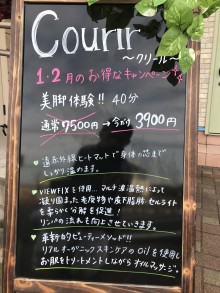 Courir
～クリール～
1・2月のお得なキャンペーン
美脚体験!! 40分
通常 7500円→今だけ 3900円
♥ 遠赤外線ヒートマットで身体の芯まで
しっかり温めます。
♥ VIEWFIXを使用…マルチ波温熱によって
凝り固まった老廃物や皮下脂肪、セルライト
を柔らかく分解を促進!
リンパの流れも向上させていきます。
♥ 革新的ビューティーメソッド!!
リアルオーガニックスキンケアのOilを使用し
お肌をトリートメントしながらオイルマッサージ。